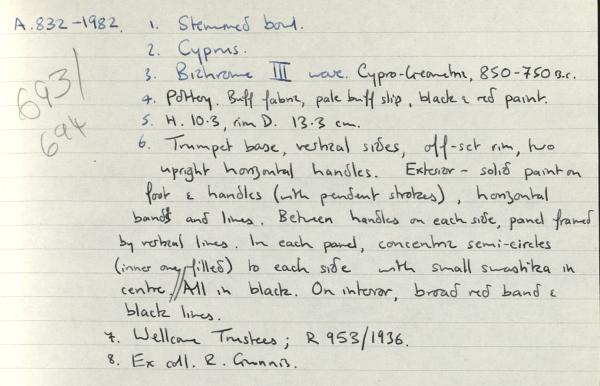 A.832-1982. 1. Stemmed bowl.
2. Cyprus.
3. Bichrome III ware. Cypro-Geometric, 850-750 B.C.
693/
694
4. Pottery. Buff fabric, pale buff slip, black & red paint.
5. H. 10.3, rim D. 13.3 cm.
6. Trumpet base, vertical sides, off-set rim, two
upright horizontal handles. Exterior - solid paint on
foot & handles (with pendent strokes), horizontal
bands and lines. Between handles on each side, panel framed
by vertical lines. In each panel, concentric semi-circles
(inner one filled) to each side with small swastika in
centre. // All in black. On interior, broad red band &
black lines.
7. Wellcome Trustees; R 953/1936.
8. Ex coll. R. Gunnis.